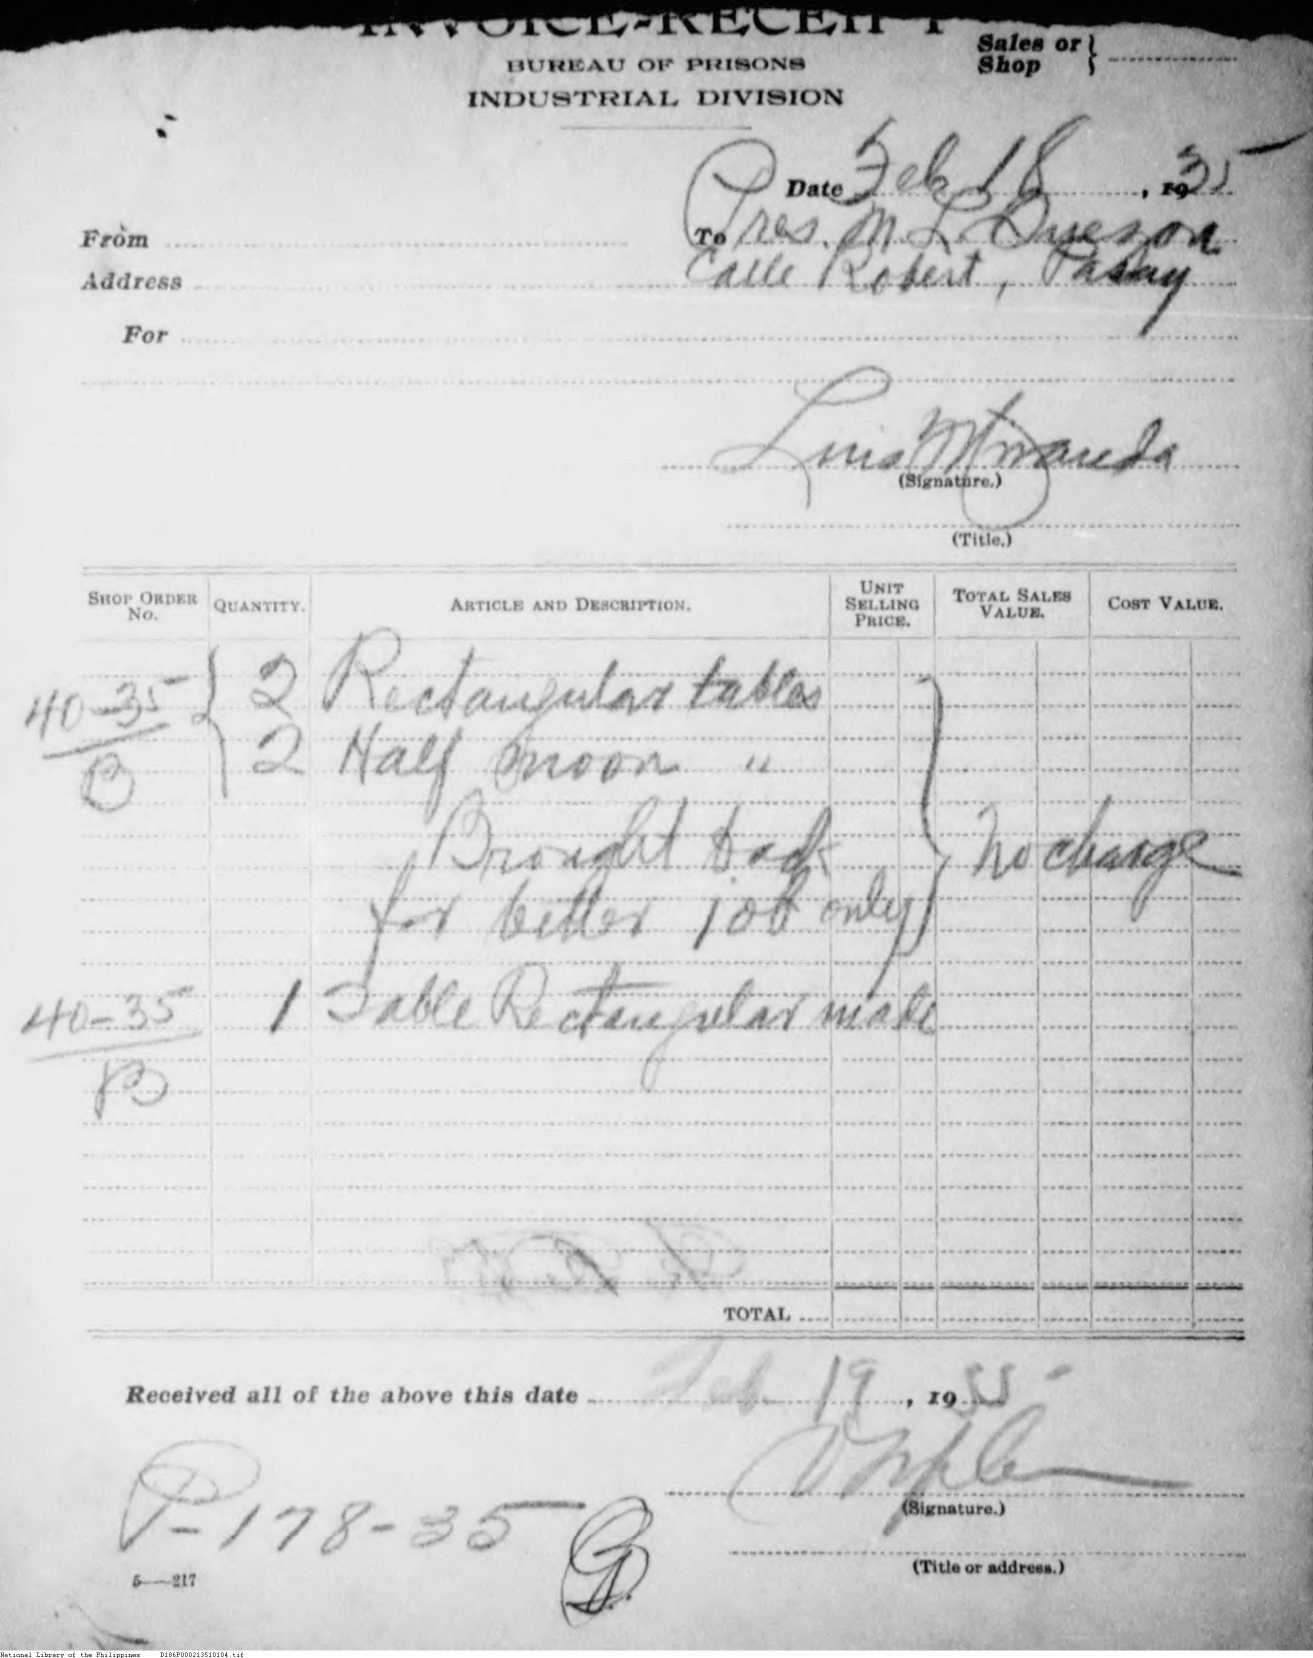 INVOICE-RECEIPT
Sales or
Shop
BUREAU OF PRISONS
INDUSTRIAL DIVISION
Date Feb 18, 1935
From To Pres. M. L. Quezon
Address Calle Robert, Pasay
For
Luis Miranda
(Signature.)
(Title.)
SHOP ORDER No. QUANTITY. ARTICLE AND DESCRIPTION. UNIT SELLING PRICE. TOTAL SALES VALUE. COST VALUE.
40-35 2 Rectangular tables
B 2 Half moon "
Brought back No charge
for better job only
40-35 1 Table Rectangular made
B
TOTAL
Received all of the above this date Feb 19, 1935
(Signature.)
P-178-35
(Title or address.)
5—217
National Library of the Philippines D186P000213510104.tif